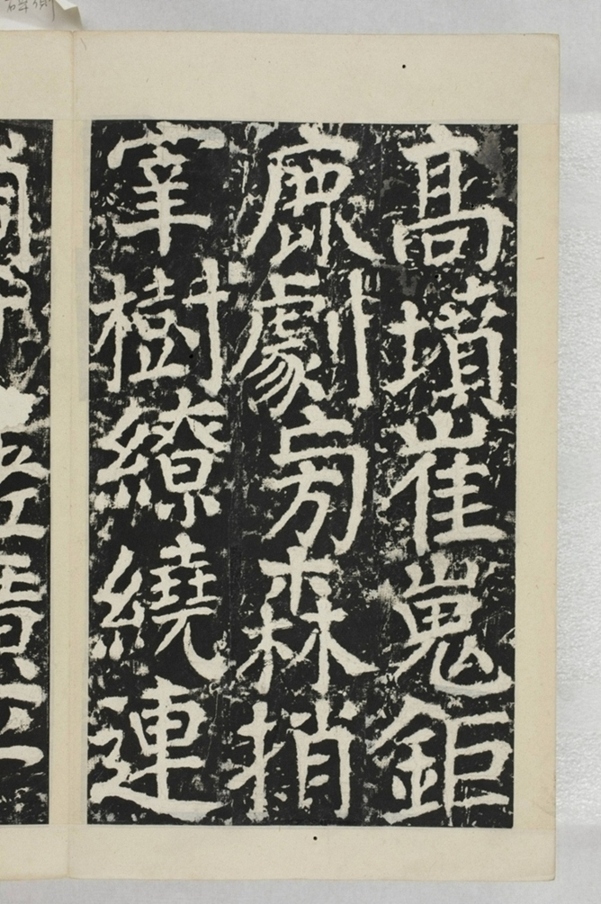 高墳崔嵬鉅
鹿劇旁森捎
宰樹繚繞連